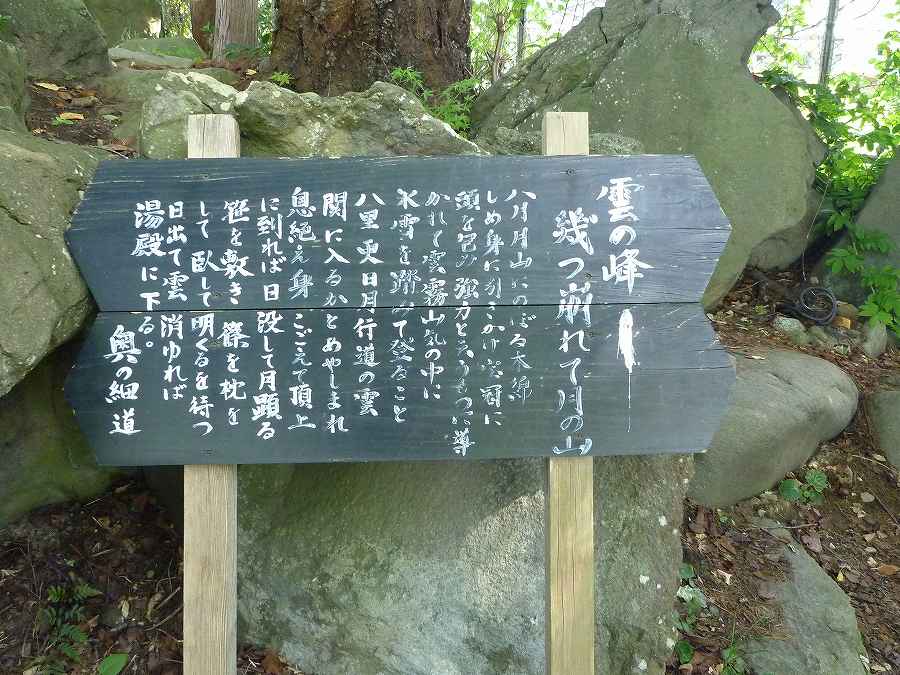 雲の峰
幾つ崩れて月の山
八月月山にのぼる木綿
しめ身に引きかけ宝冠に
頭を包み強力と云うものに導
かれて雲霧山気の中に
氷雪を踏みて登ること
八里更日月行道の雲
関に入るかとあやしまれ
息絶え身こごえて頂上
に到れば日没して月顕る
笹を敷き篠を枕を
して臥して明くるを待つ
日出て雲消ゆれば
湯殿に下る。
奥の細道